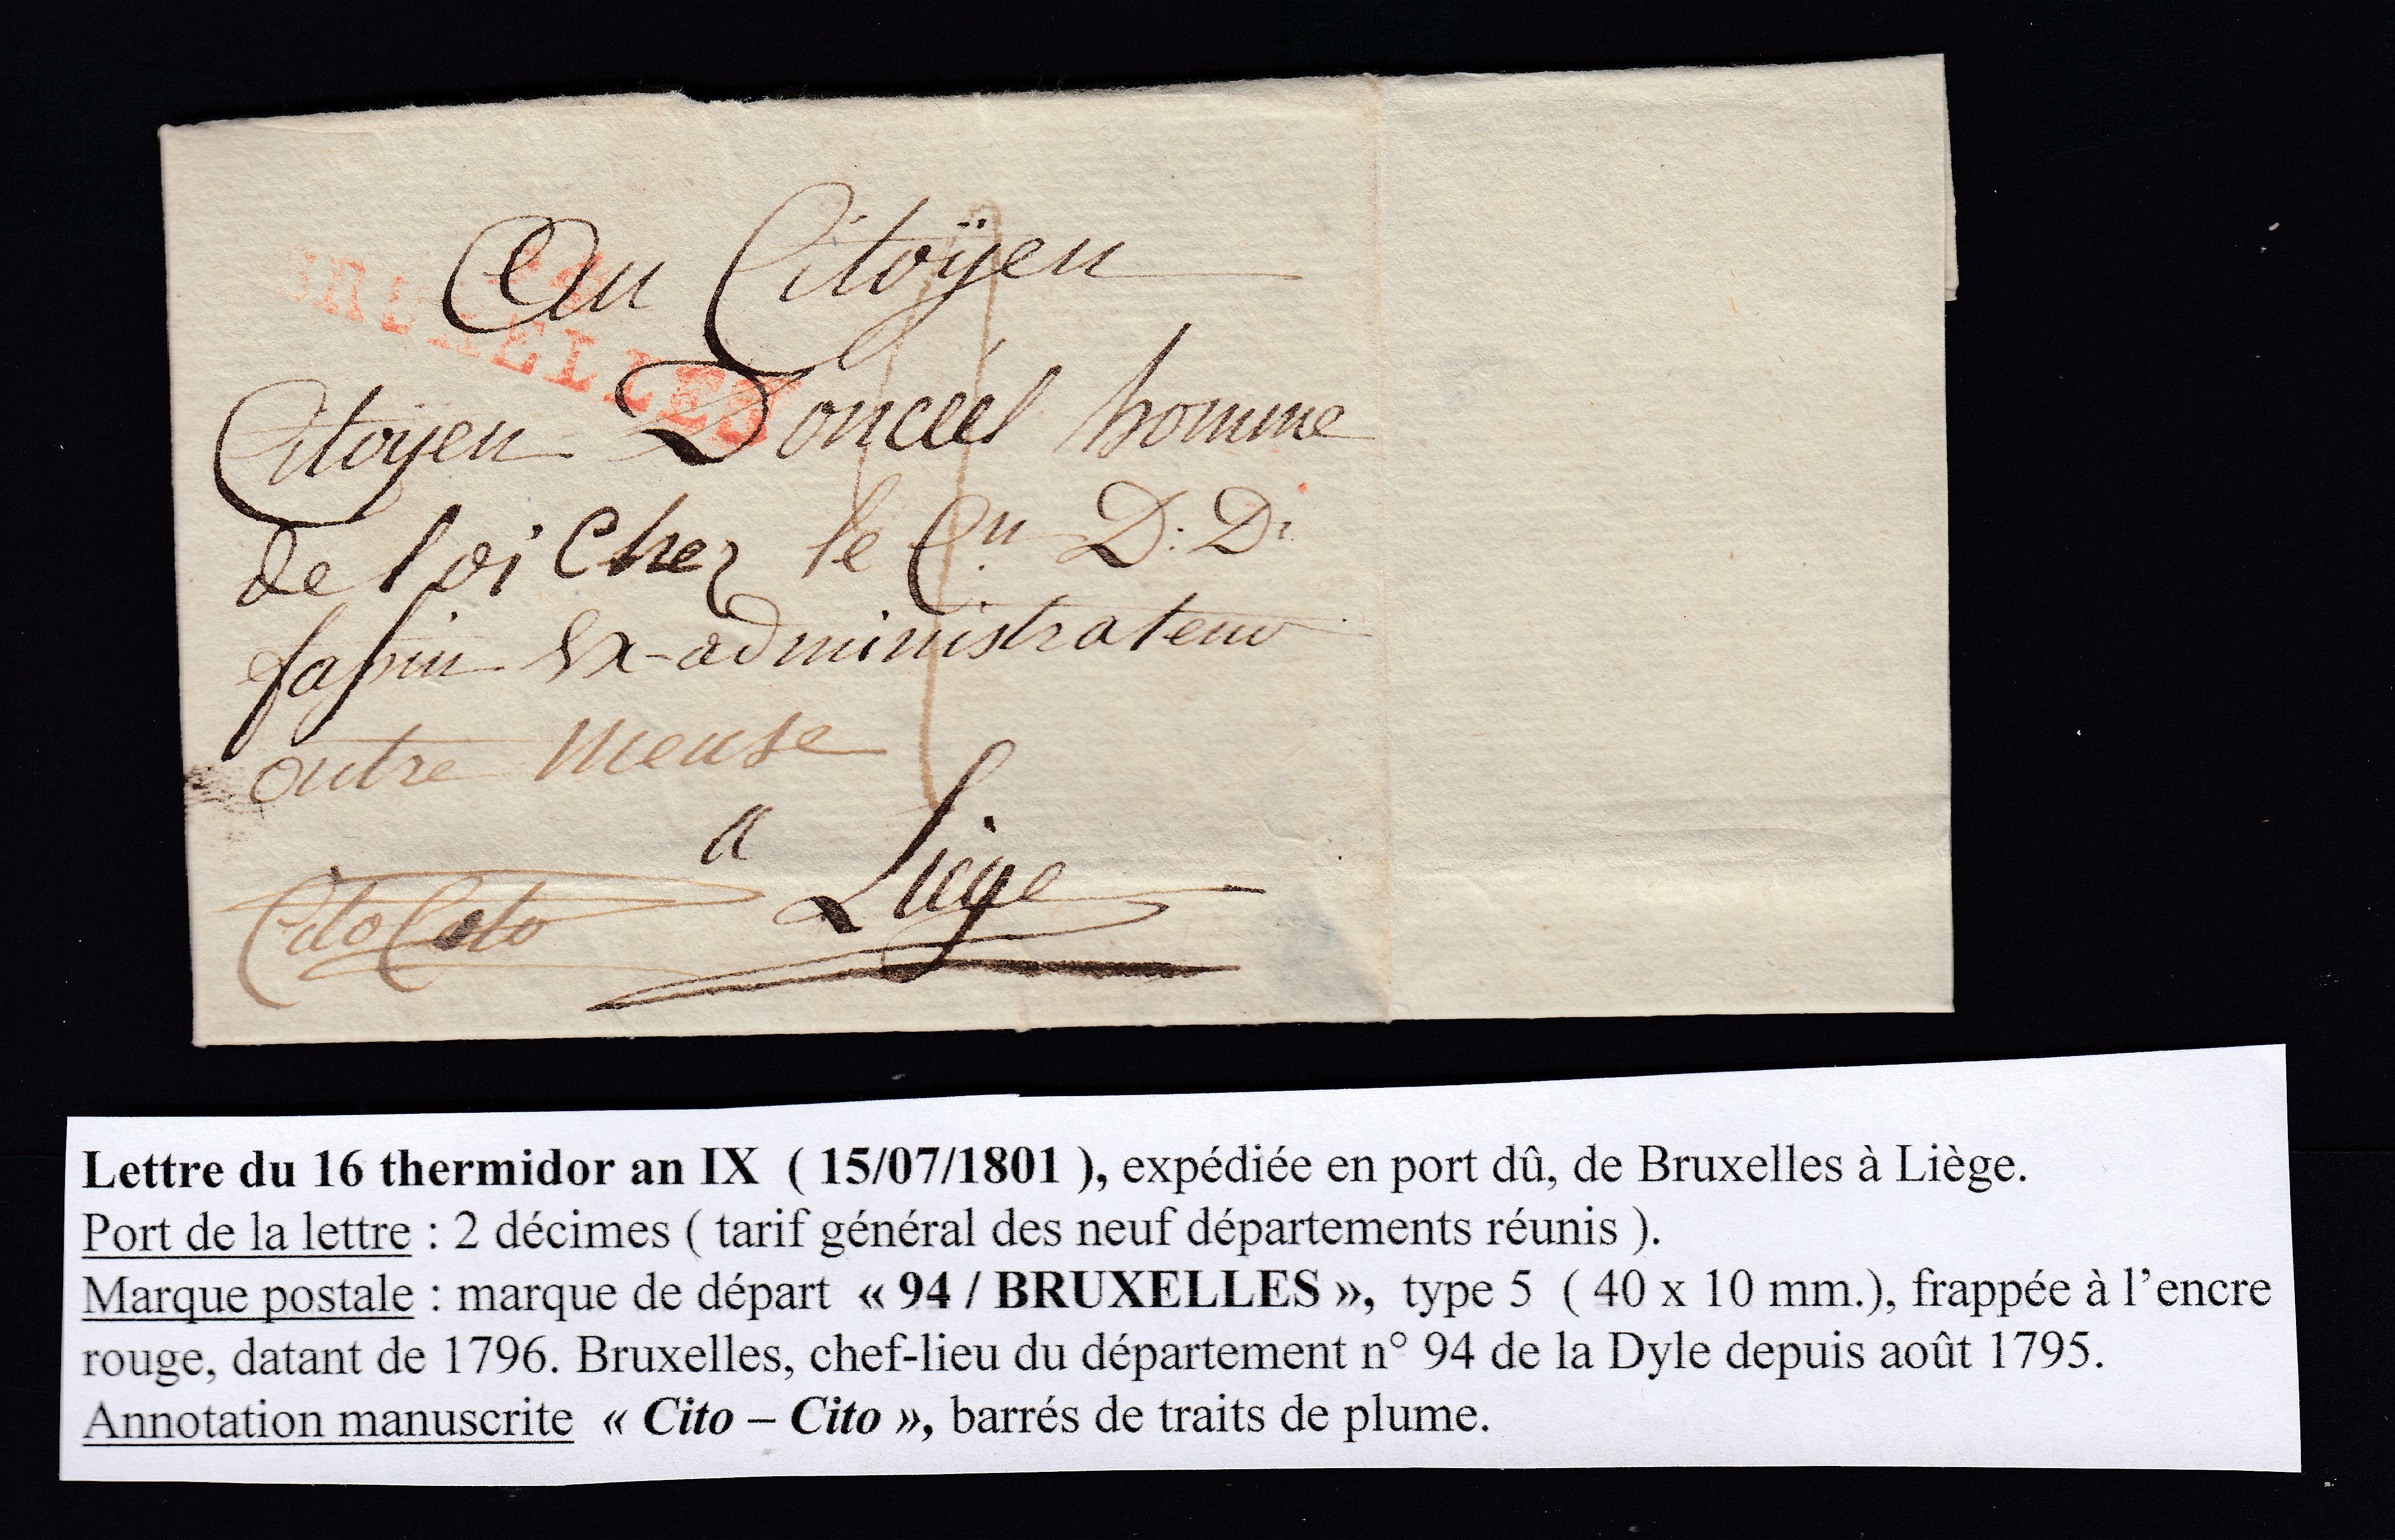 94
BRUXELLES
Au Citoÿen
Citoÿen Doncéel homme
de loi Chez le Cn. D: D:
fassin Ex-administrateur
outre Meuse
a Liége
Cito Cito
Lettre du 16 thermidor an IX ( 15/07/1801 ), expédiée en port dû, de Bruxelles à Liège.
Port de la lettre : 2 décimes ( tarif général des neuf départements réunis ).
Marque postale : marque de départ « 94 / BRUXELLES », type 5 ( 40 x 10 mm.), frappée à l’encre
rouge, datant de 1796. Bruxelles, chef-lieu du département n° 94 de la Dyle depuis août 1795.
Annotation manuscrite « Cito – Cito », barrés de traits de plume.